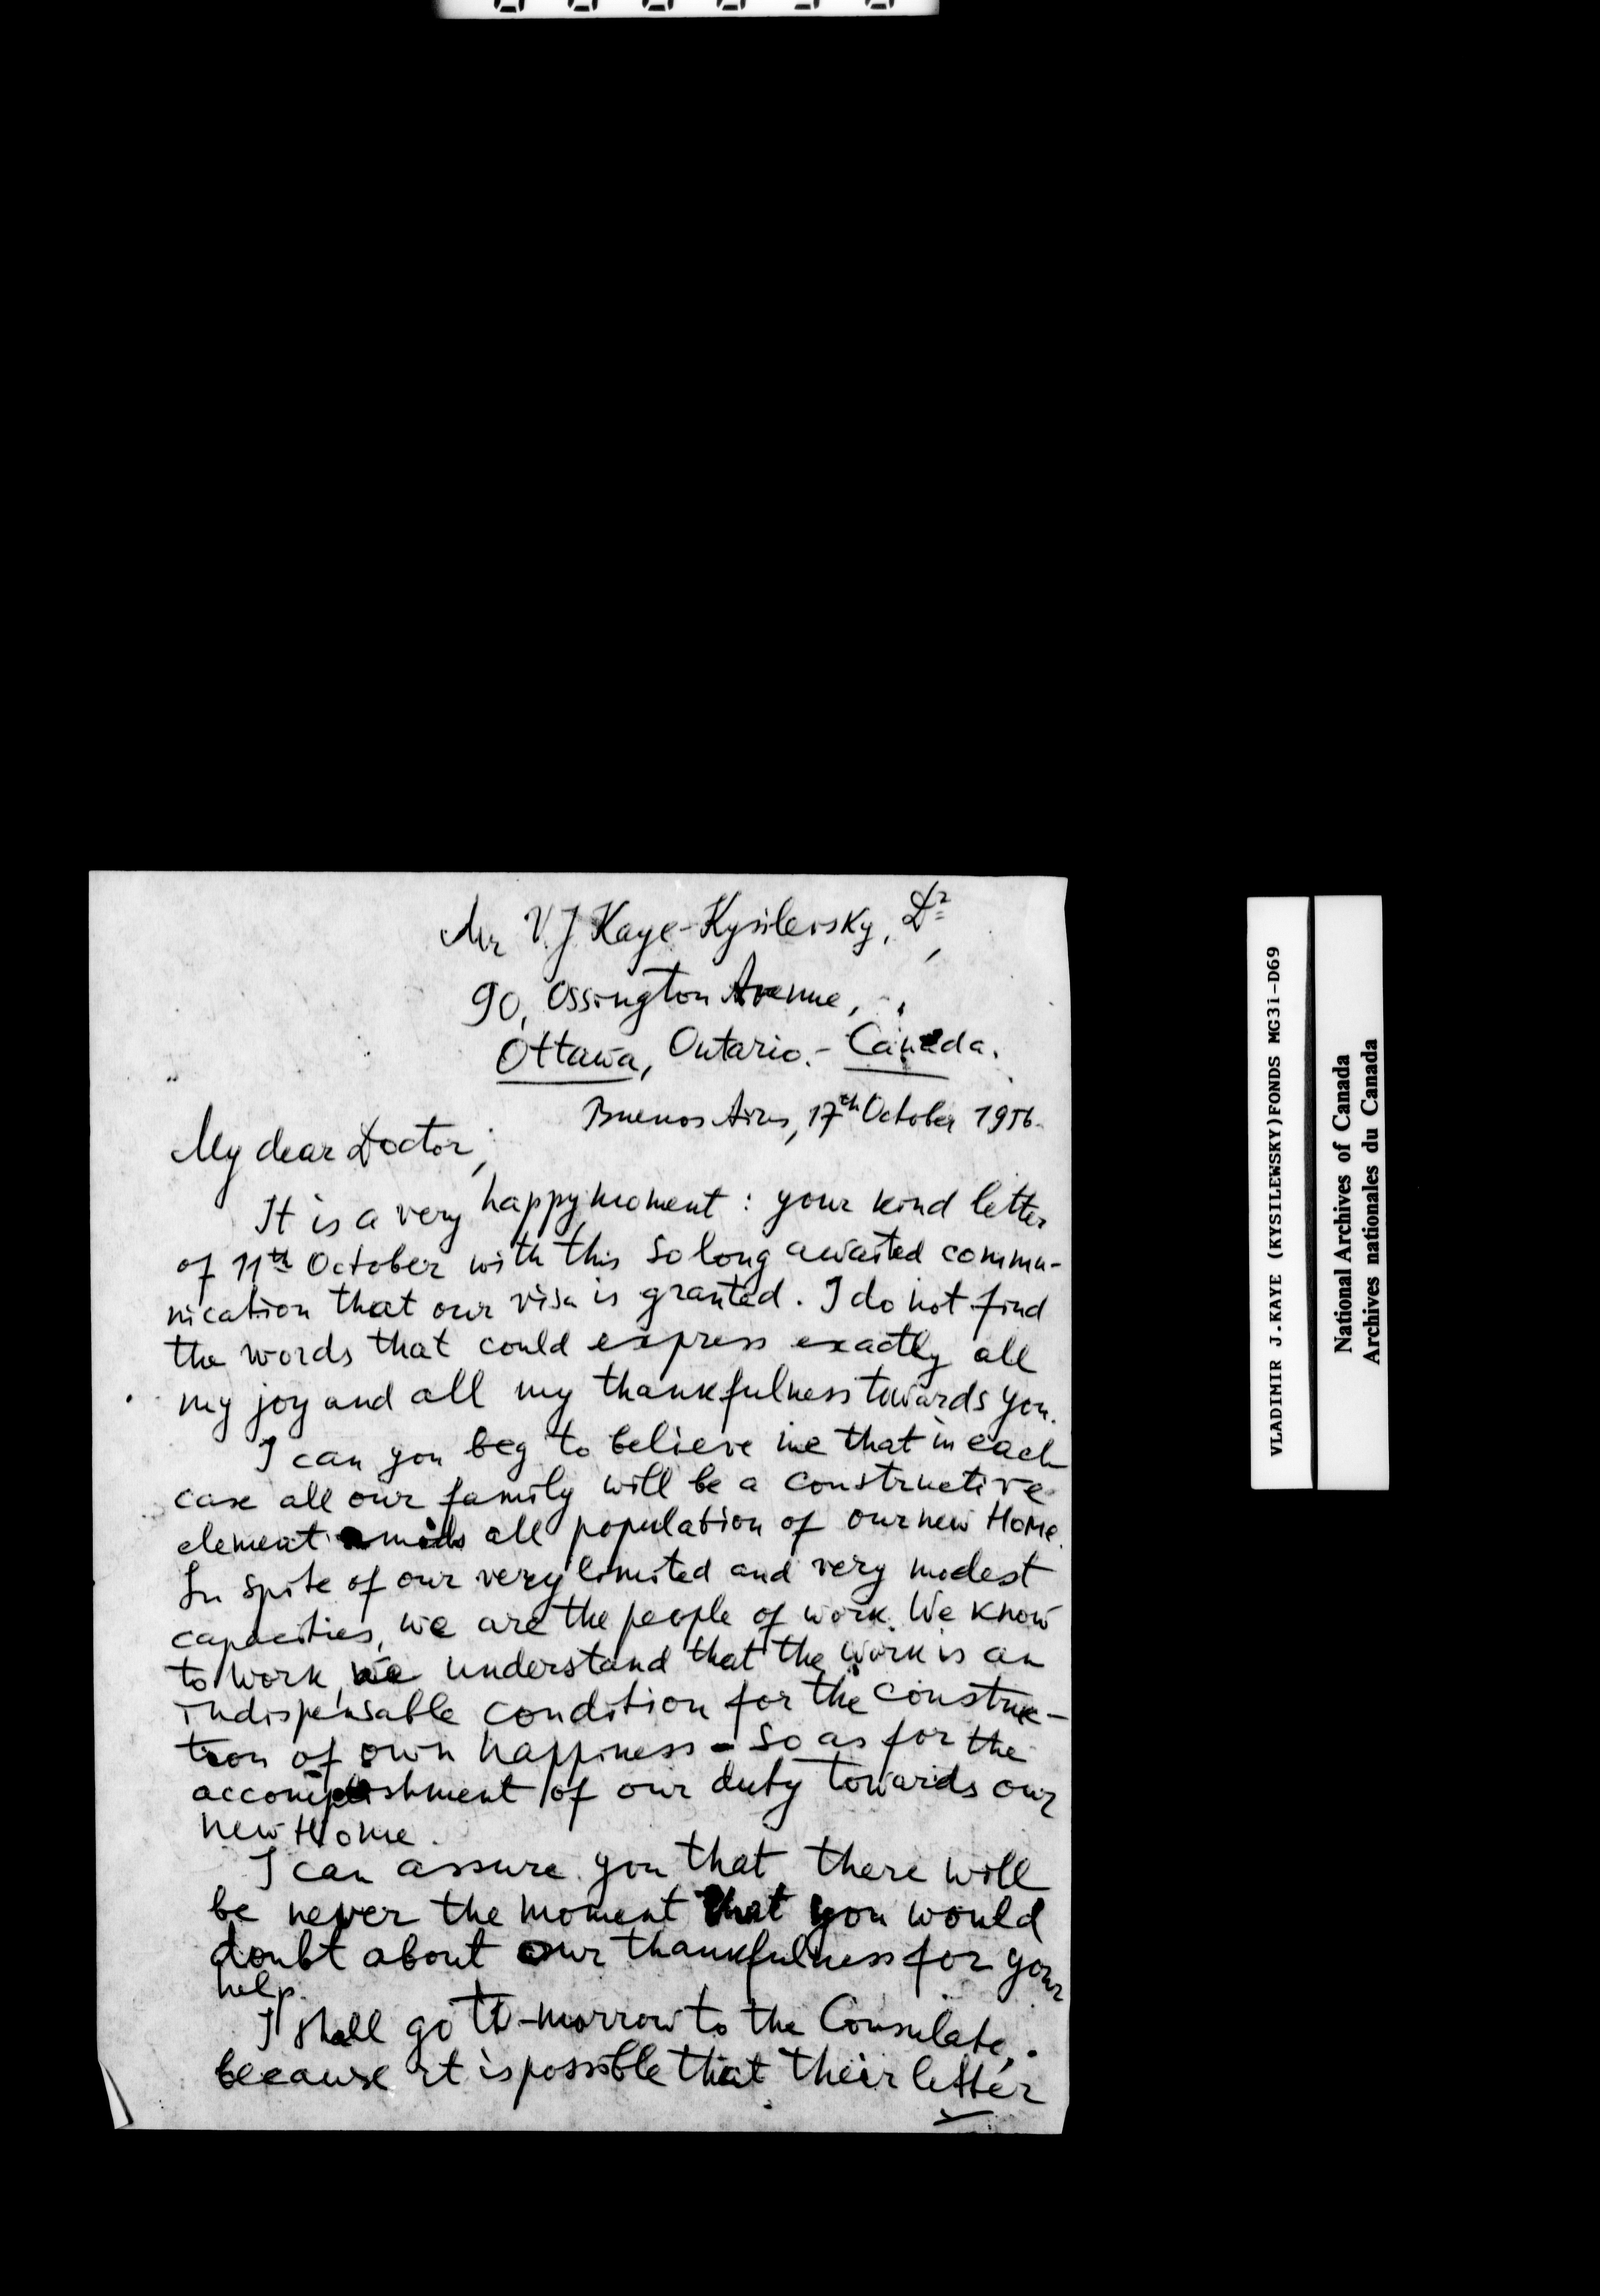 Mr V. J. Kaye-Kysilevsky, Dr,
90, Ossington Avenue,
Ottawa, Ontario.- Canada.
Buenos Aires, 17th October 1956.
My dear Doctor,
It is a very happy moment : your kind letter
of 11th October with this so long awaited commu-
nication that our visa is granted. I do not find
the words that could express exactly all
my joy and all my thankfulness towards you.
I can you beg to believe me that in each
case all our family will be a constructive
element amids all population of our new Home.
In spite of our very limited and very modest
capacities, we are the people of work. We know
to work, we understand that the work is an
indispensable condition for the construc-
tion of own happiness - so as for the
accomplishment of our duty towards our
new Home.
I can assure you that there will
be never the moment that you would
doubt about our thankfulness for your
help.
I shall go to-morrow to the Consulate,
because it is possible that their letter
VLADIMIR J.KAYE (KYSILEWSKY)FONDS MG31-D69
National Archives of Canada
Archives nationales du Canada